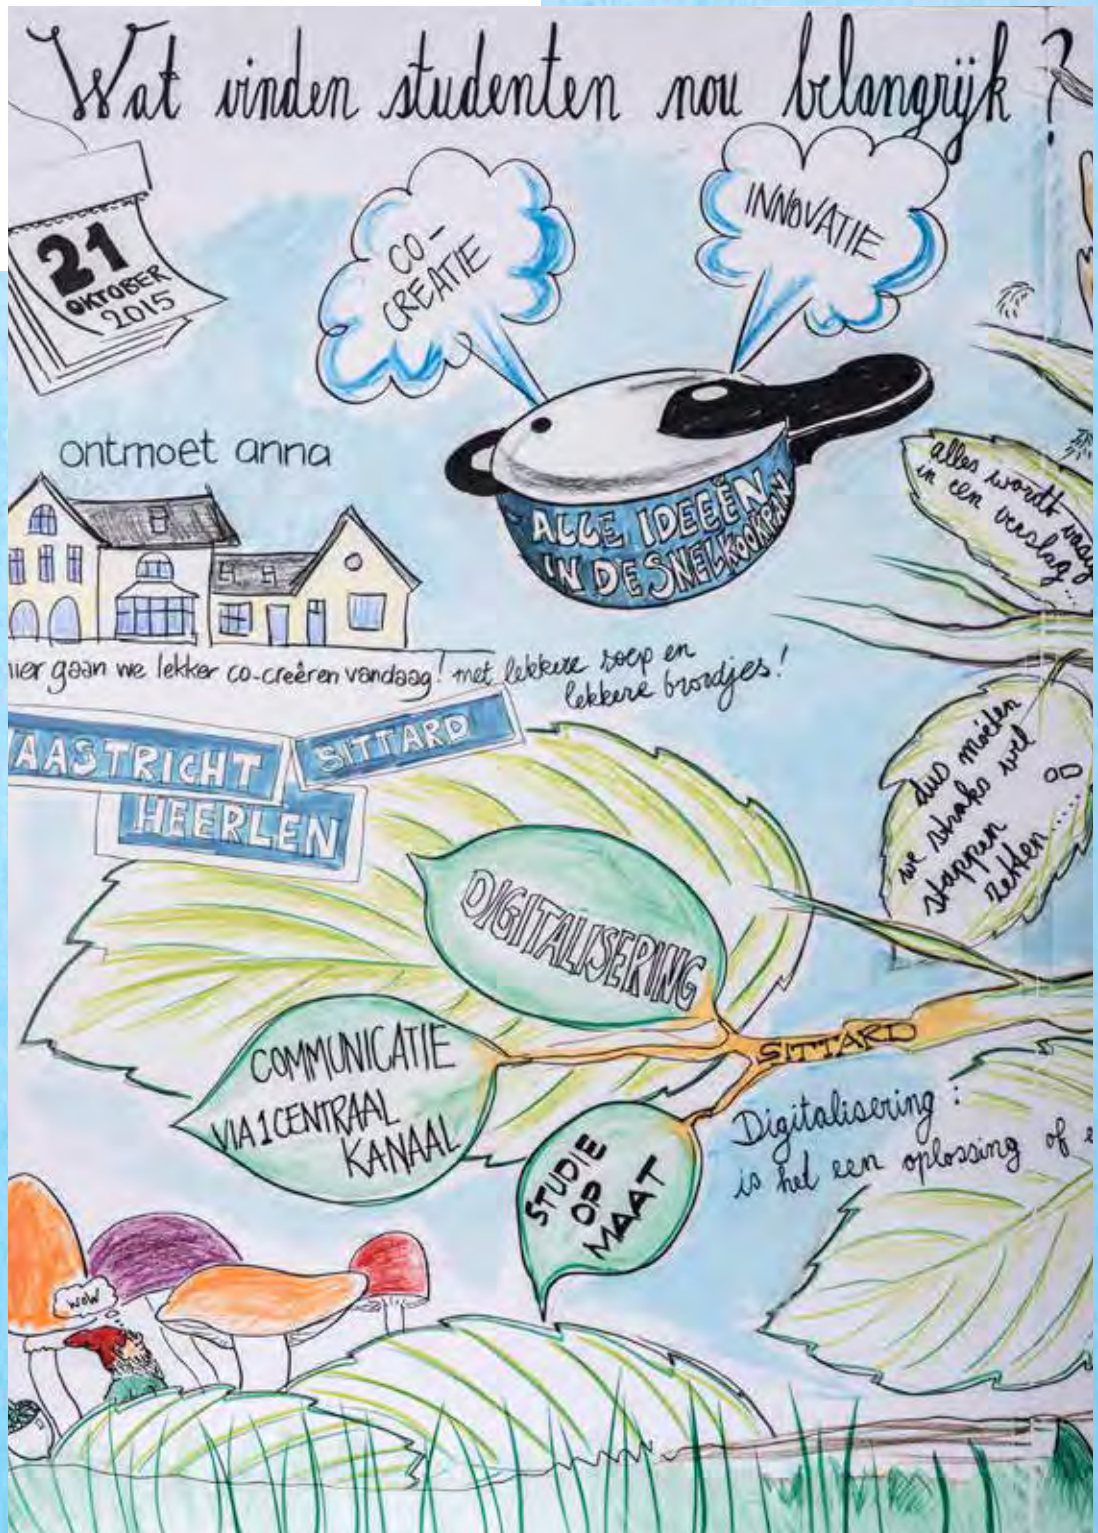 Wat vinden studenten nou belangrijk?
21
OKTOBER
2015
CO-
CREATIE
INNOVATIE
ontmoet anna
ALLE IDEEËN
IN DE SNELKOOKPAN
alles wordt vaag
in een verslag...
hier gaan we lekker co-creëren vandaag! met lekkere soep en
lekkere broodjes!
AASTRICHT
SITTARD
HEERLEN
dus moeten
we straks wel
stappen
zetten.....
DIGITALISERING
COMMUNICATIE
VIA 1 CENTRAAL
KANAAL
SITTARD
STUDIE
OP
MAAT
Digitalisering:
is het een oplossing of
WOW